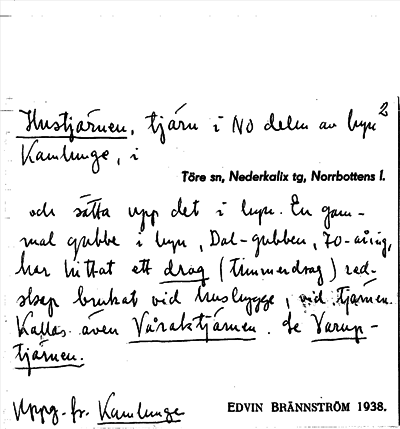 2
Hustjärnen, tjärn i NO delen av byn
Kamlunge, i
Töre sn, Nederkalix tg, Norrbottens l.
och sätta upp det i byn. En gam-
mal gubbe i byn, Dal-gubben, 70-åring,
har hittat ett drag (timmerdrag) red-
skap brukat vid husbygge, vid tjärnen.
Kallas även Våraktjärnen. Se Varup-
tjärnen.
Uppg. fr. Kamlunge
EDVIN BRÄNNSTRÖM 1938.